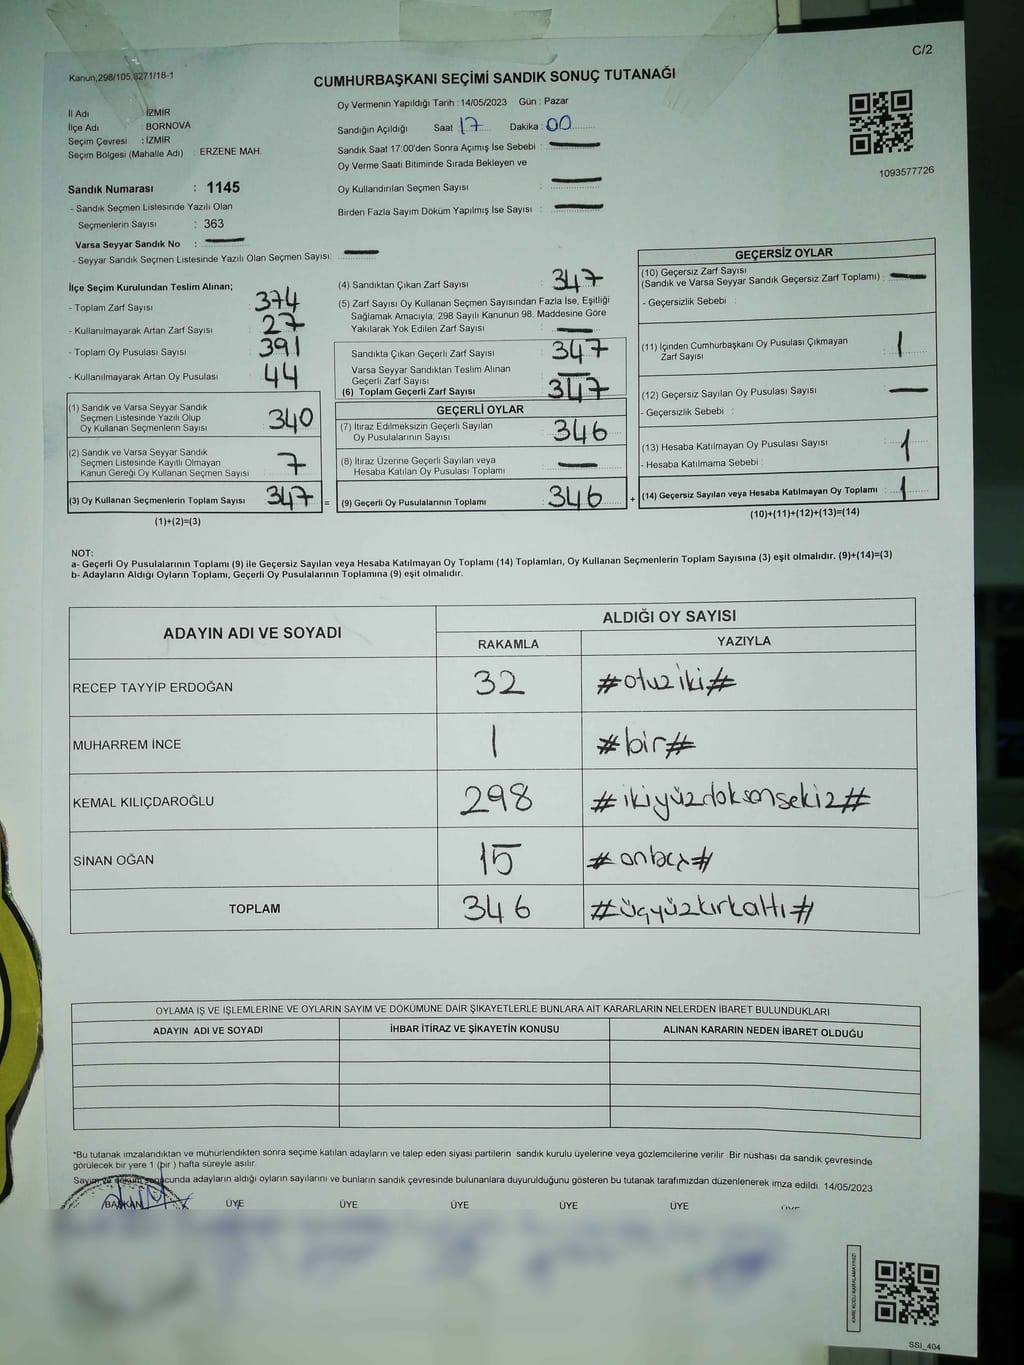 C/2
Kanun;298/105,6271/16-1
CUMHURBAŞKANI SEÇİMİ SANDIK SONUÇ TUTANAĞI
İl Adı : İZMİR
İlçe Adı : BORNOVA
Seçim Çevresi : İZMİR
Seçim Bölgesi (Mahalle Adı) : ERZENE MAH.
Oy Vermenin Yapıldığı Tarih : 14/05/2023 Gün : Pazar
Sandığın Açıldığı Saat : 17 Dakika : 00
Sandık Saat 17:00'den Sonra Açımış İse Sebebi :
Oy Verme Saati Bitiminde Sırada Bekleyen ve
Oy Kullandırılan Seçmen Sayısı :
Birden Fazla Sayım Döküm Yapılmış İse Sayısı :
1093577726
Sandık Numarası : 1145
- Sandık Seçmen Listesinde Yazılı Olan
Seçmenlerin Sayısı : 363
Varsa Seyyar Sandık No :
- Seyyar Sandık Seçmen Listesinde Yazılı Olan Seçmen Sayısı:
İlçe Seçim Kurulundan Teslim Alınan;
- Toplam Zarf Sayısı : 374
- Kullanılmayarak Artan Zarf Sayısı : 27
- Toplam Oy Pusulası Sayısı : 391
- Kullanılmayarak Artan Oy Pusulası : 44
(1) Sandık ve Varsa Seyyar Sandık
Seçmen Listesinde Yazılı Olup
Oy Kullanan Seçmenlerin Sayısı : 340
(2) Sandık ve Varsa Seyyar Sandık
Seçmen Listesinde Kayıtlı Olmayan
Kanun Gereği Oy Kullanan Seçmen Sayısı : 7
(3) Oy Kullanan Seçmenlerin Toplam Sayısı : 347 =
(1)+(2)=(3)
(4) Sandıktan Çıkan Zarf Sayısı : 347
(5) Zarf Sayısı Oy Kullanan Seçmen Sayısından Fazla İse, Eşitliği
Sağlamak Amacıyla, 298 Sayılı Kanunun 98. Maddesine Göre
Yakılarak Yok Edilen Zarf Sayısı :
Sandıkta Çıkan Geçerli Zarf Sayısı : 347
Varsa Seyyar Sandıktan Teslim Alınan
Geçerli Zarf Sayısı :
(6) Toplam Geçerli Zarf Sayısı : 347
GEÇERLİ OYLAR
(7) İtiraz Edilmeksizin Geçerli Sayılan
Oy Pusulalarının Sayısı : 346
(8) İtiraz Üzerine Geçerli Sayılan veya
Hesaba Katılan Oy Pusulası Toplamı :
(9) Geçerli Oy Pusulalarının Toplamı : 346 +
GEÇERSİZ OYLAR
(10) Geçersiz Zarf Sayısı
(Sandık ve Varsa Seyyar Sandık Geçersiz Zarf Toplamı) :
- Geçersizlik Sebebi :
(11) İçinden Cumhurbaşkanı Oy Pusulası Çıkmayan
Zarf Sayısı : 1
(12) Geçersiz Sayılan Oy Pusulası Sayısı :
- Geçersizlik Sebebi :
(13) Hesaba Katılmayan Oy Pusulası Sayısı : 1
- Hesaba Katılmama Sebebi :
(14) Geçersiz Sayılan veya Hesaba Katılmayan Oy Toplamı : 1
(10)+(11)+(12)+(13)=(14)
NOT:
a- Geçerli Oy Pusulalarının Toplamı (9) ile Geçersiz Sayılan veya Hesaba Katılmayan Oy Toplamı (14) Toplamları, Oy Kullanan Seçmenlerin Toplam Sayısına (3) eşit olmalıdır. (9)+(14)=(3)
b- Adayların Aldığı Oyların Toplamı, Geçerli Oy Pusulalarının Toplamına (9) eşit olmalıdır.
ADAYIN ADI VE SOYADI
ALDIĞI OY SAYISI
RAKAMLA YAZIYLA
RECEP TAYYİP ERDOĞAN 32 #otuziki#
MUHARREM İNCE 1 #bir#
KEMAL KILIÇDAROĞLU 298 #ikiyüzdoksansekiz#
SİNAN OĞAN 15 #onbeş#
TOPLAM 346 #üçyüzkırkaltı#
OYLAMA İŞ VE İŞLEMLERİNE VE OYLARIN SAYIM VE DÖKÜMÜNE DAİR ŞİKAYETLERLE BUNLARA AİT KARARLARIN NELERDEN İBARET BULUNDUKLARI
ADAYIN ADI VE SOYADI İHBAR İTİRAZ VE ŞİKAYETİN KONUSU ALINAN KARARIN NEDEN İBARET OLDUĞU
*Bu tutanak imzalandıktan ve mühürlendikten sonra seçime katılan adayların ve talep eden siyasi partilerin sandık kurulu üyelerine veya gözlemcilerine verilir. Bir nüshası da sandık çevresinde
görülecek bir yere 1 (bir ) hafta süreyle asılır.
Sayım ve döküm sonucunda adayların aldığı oyların sayılarını ve bunların sandık çevresinde bulunanlara duyurulduğunu gösteren bu tutanak tarafımızdan düzenlenerek imza edildi. 14/05/2023
BAŞKAN ÜYE ÜYE ÜYE ÜYE ÜYE
SSI_404